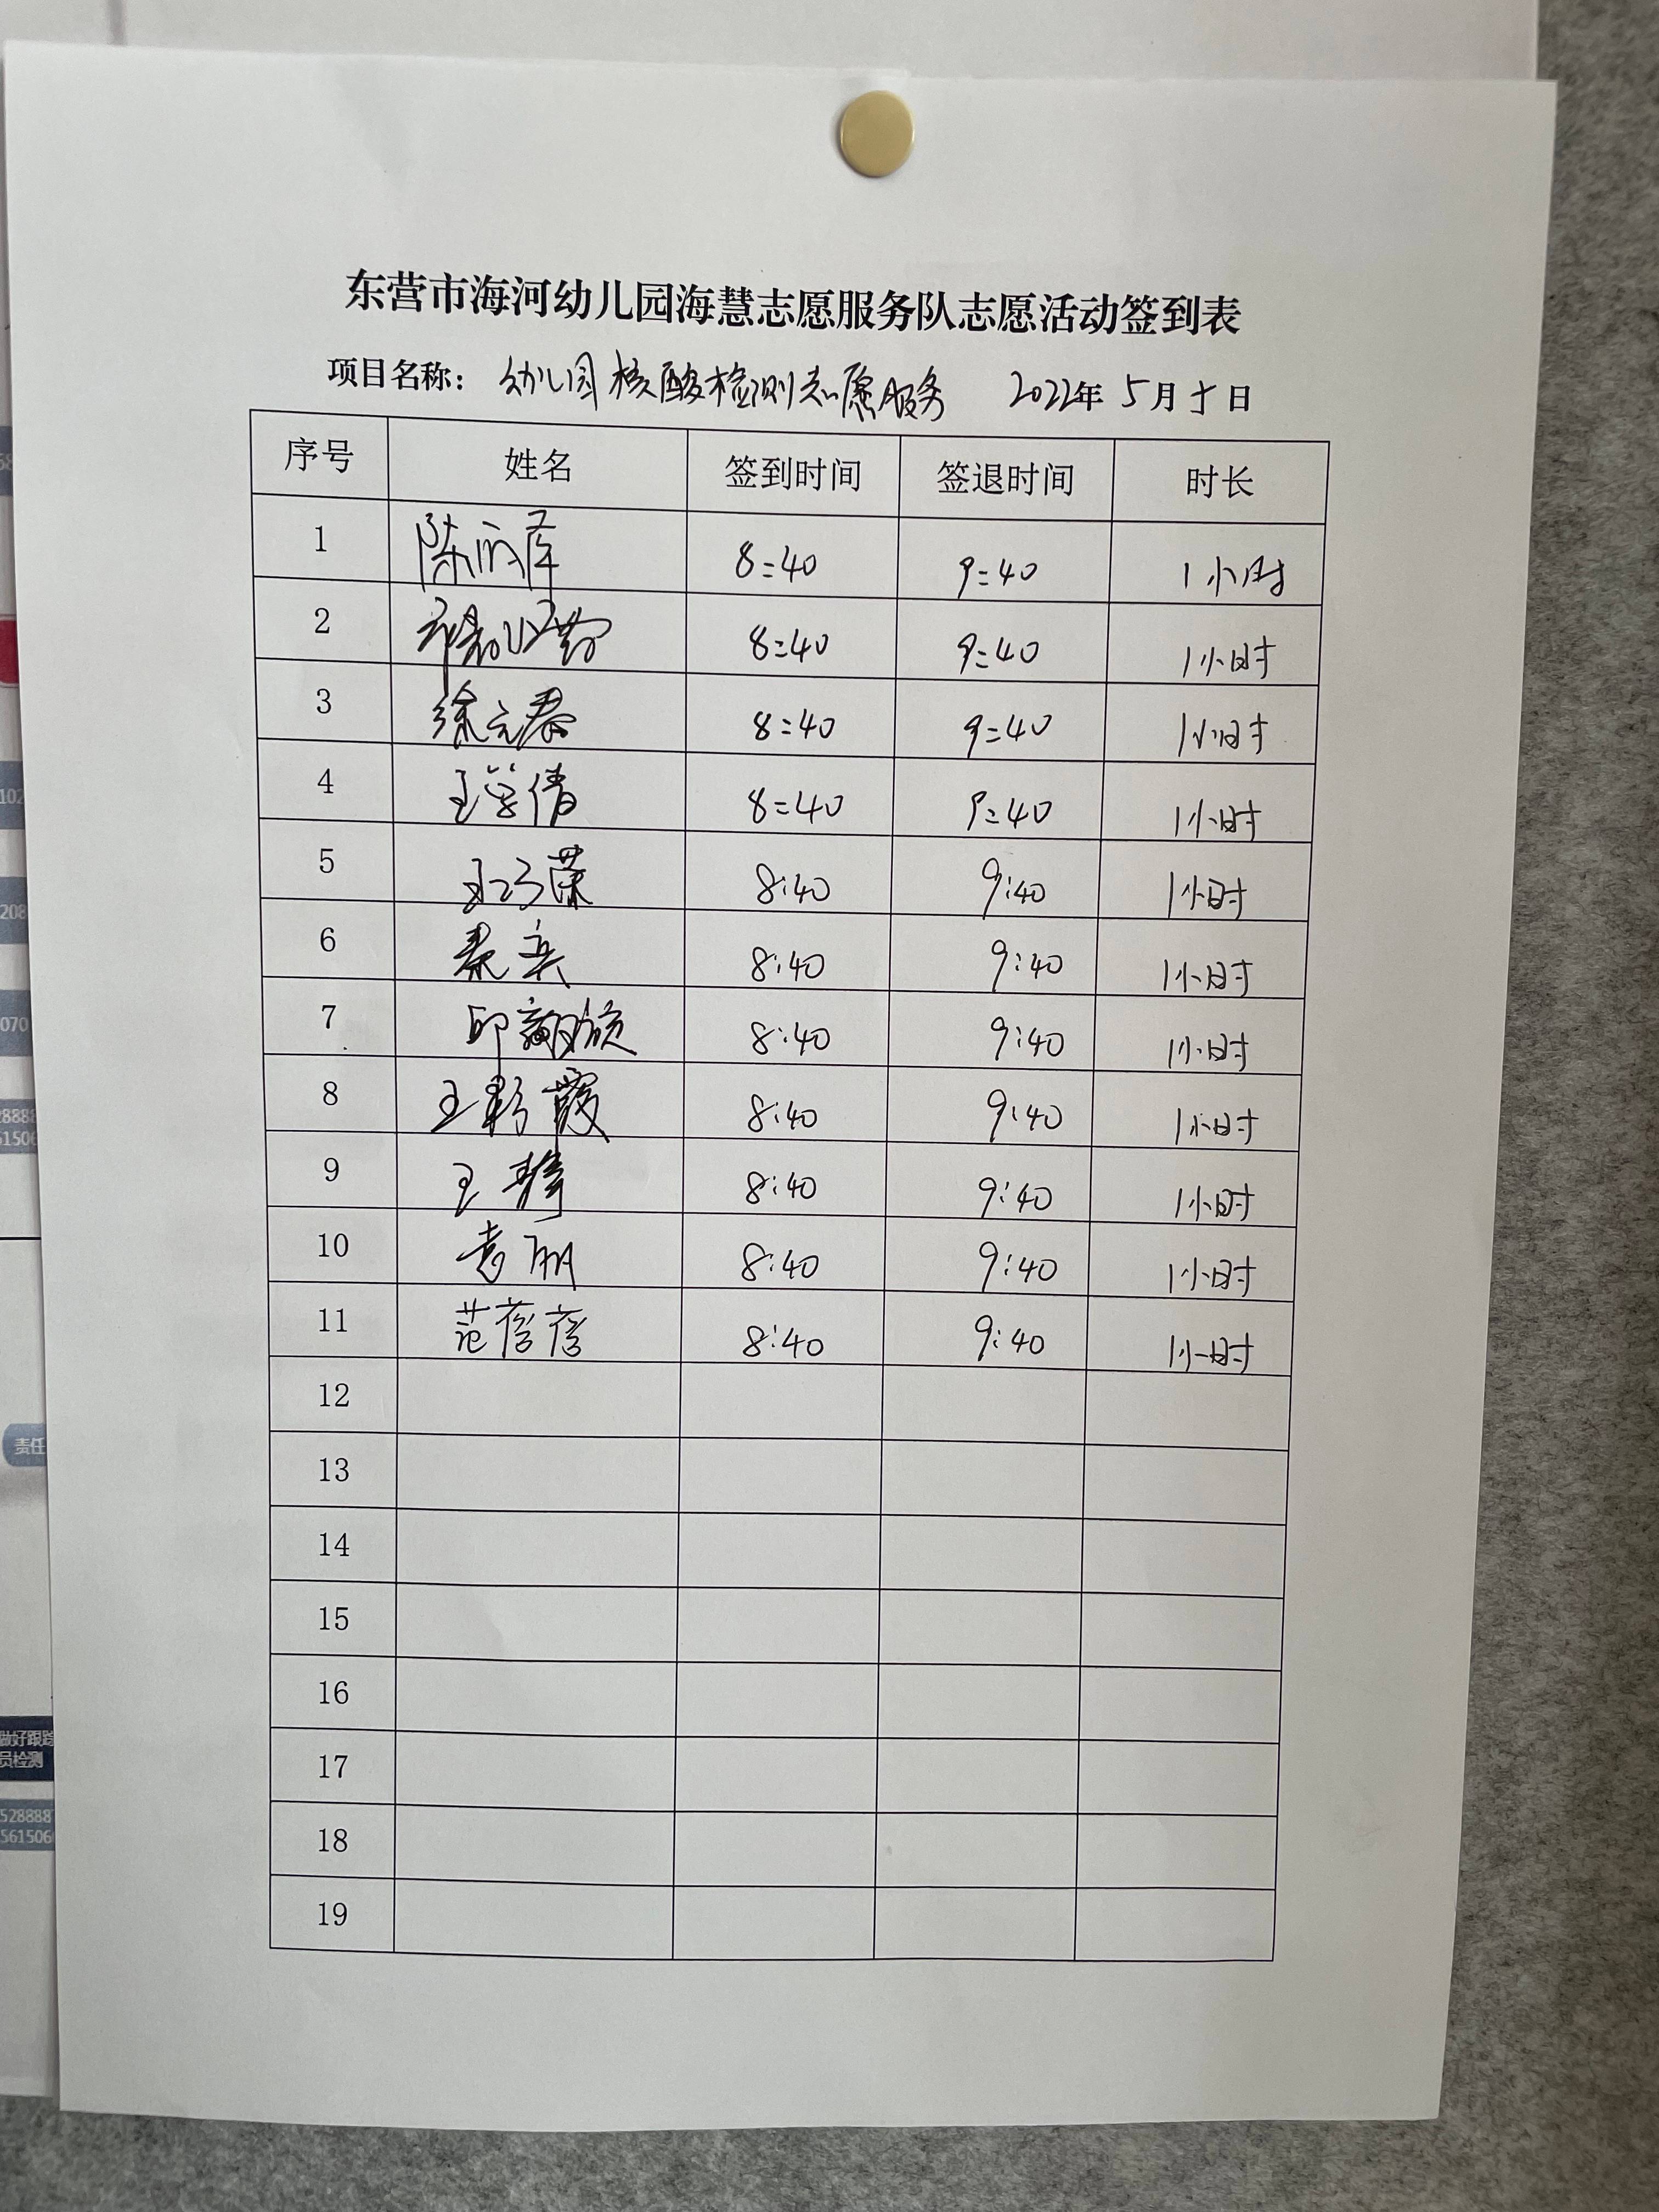 东营市海河幼儿园海慧志愿服务队志愿活动签到表
项目名称：幼儿园核酸检测志愿服务 2022年 5月 日
序号 姓名 签到时间 签退时间 时长
1 陈 8:40 9:40 1小时
2 8:40 9:40 1小时
3 徐元春 8:40 9:40 1小时
4 王学倩 8:40 9:40 1小时
5 王巧荣 8:40 9:40 1小时
6 秦英 8:40 9:40 1小时
7 8:40 9:40 1小时
8 王彩霞 8:40 9:40 1小时
9 王静 8:40 9:40 1小时
10 袁丽 8:40 9:40 1小时
11 范蓓蓓 8:40 9:40 1小时
12
13
14
15
16
17
18
19
102
208
070
28888
责任
做好跟踪
员检测
528888
561506